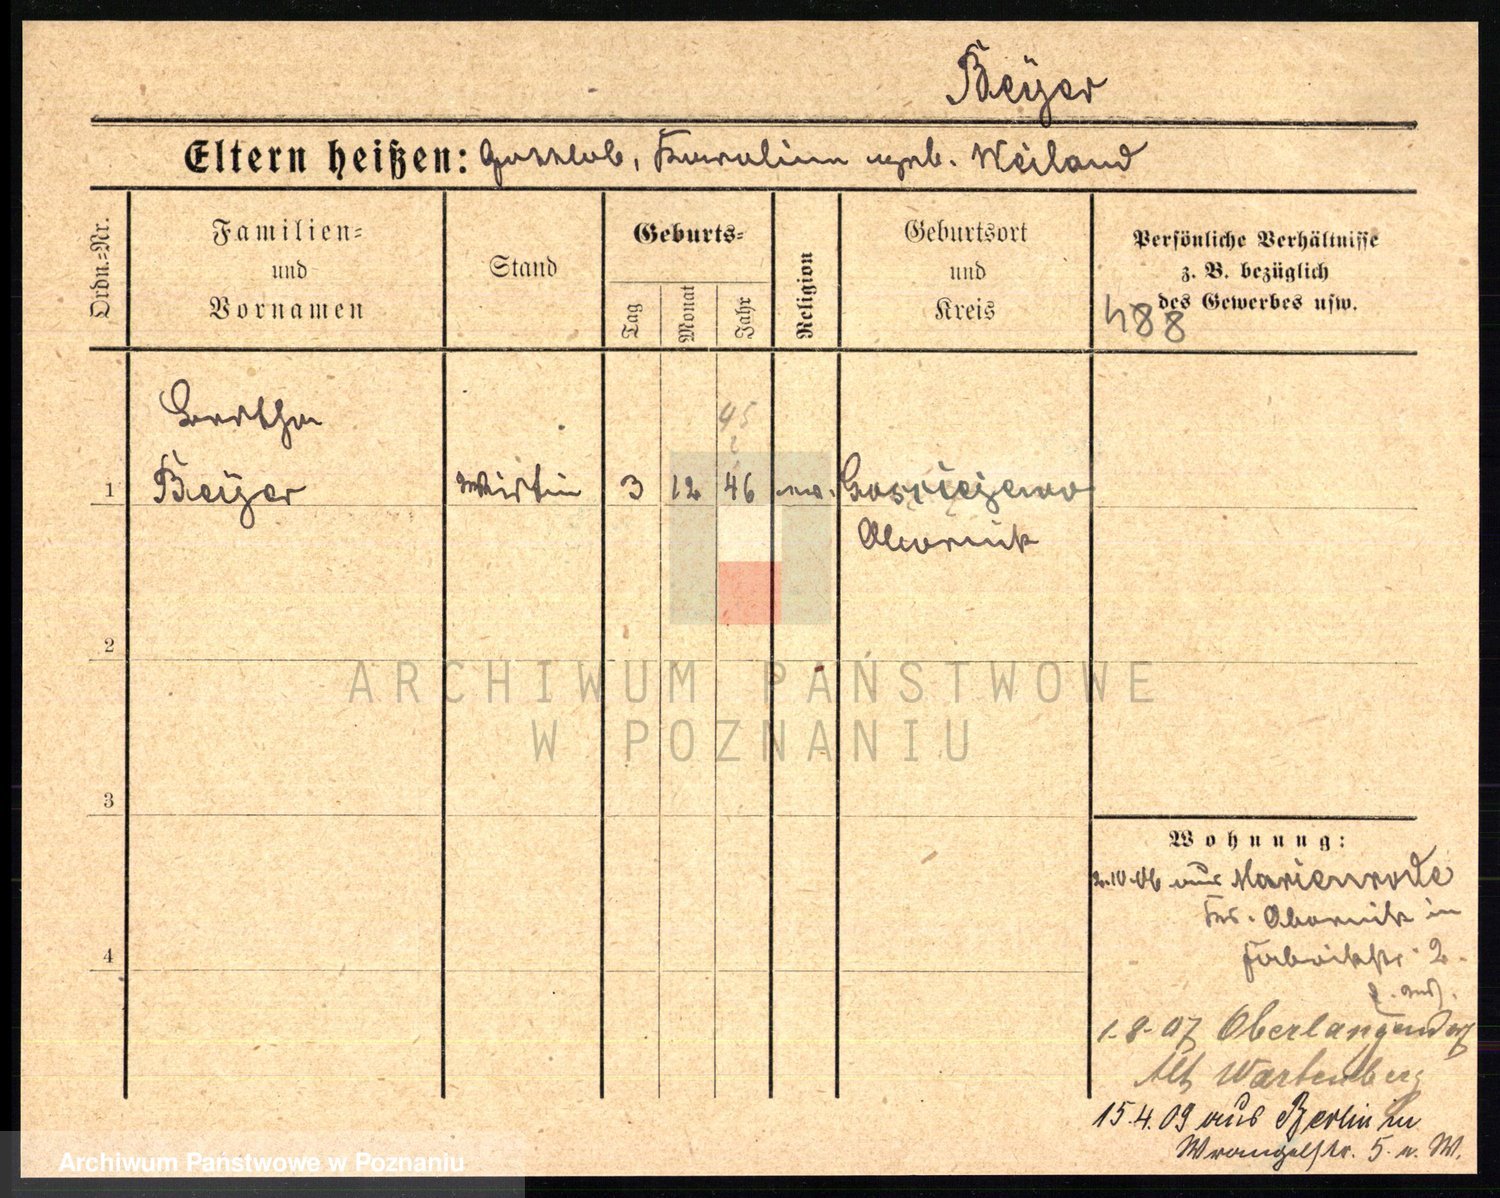 Beÿer
Eltern heißen: Gottlob, Karoline geb. Weiland
Ordn.-Nr.
Familien-
und
Vornamen
Stand
Geburts-
Tag
Monat
Jahr
Religion
Geburtsort
und
Kreis
Persönliche Verhältnisse
z. B. bezüglich
des Gewerbes usw.
488
Bertha
45
1 Beÿer Wirtin 3 12 46 ev.
Obornik
2
3
4
Wohnung:
2.10.06 aus Marienrode
Krs. Obornik in
Fabrikstr. 2.
1.8.07 Oberlangendorf
Alt Wartenberg
15.4.09 aus Berlin in
Wrangelstr. 5. b. W.
ARCHIWUM PAŃSTWOWE
W POZNANIU
Archiwum Państwowe w Poznaniu